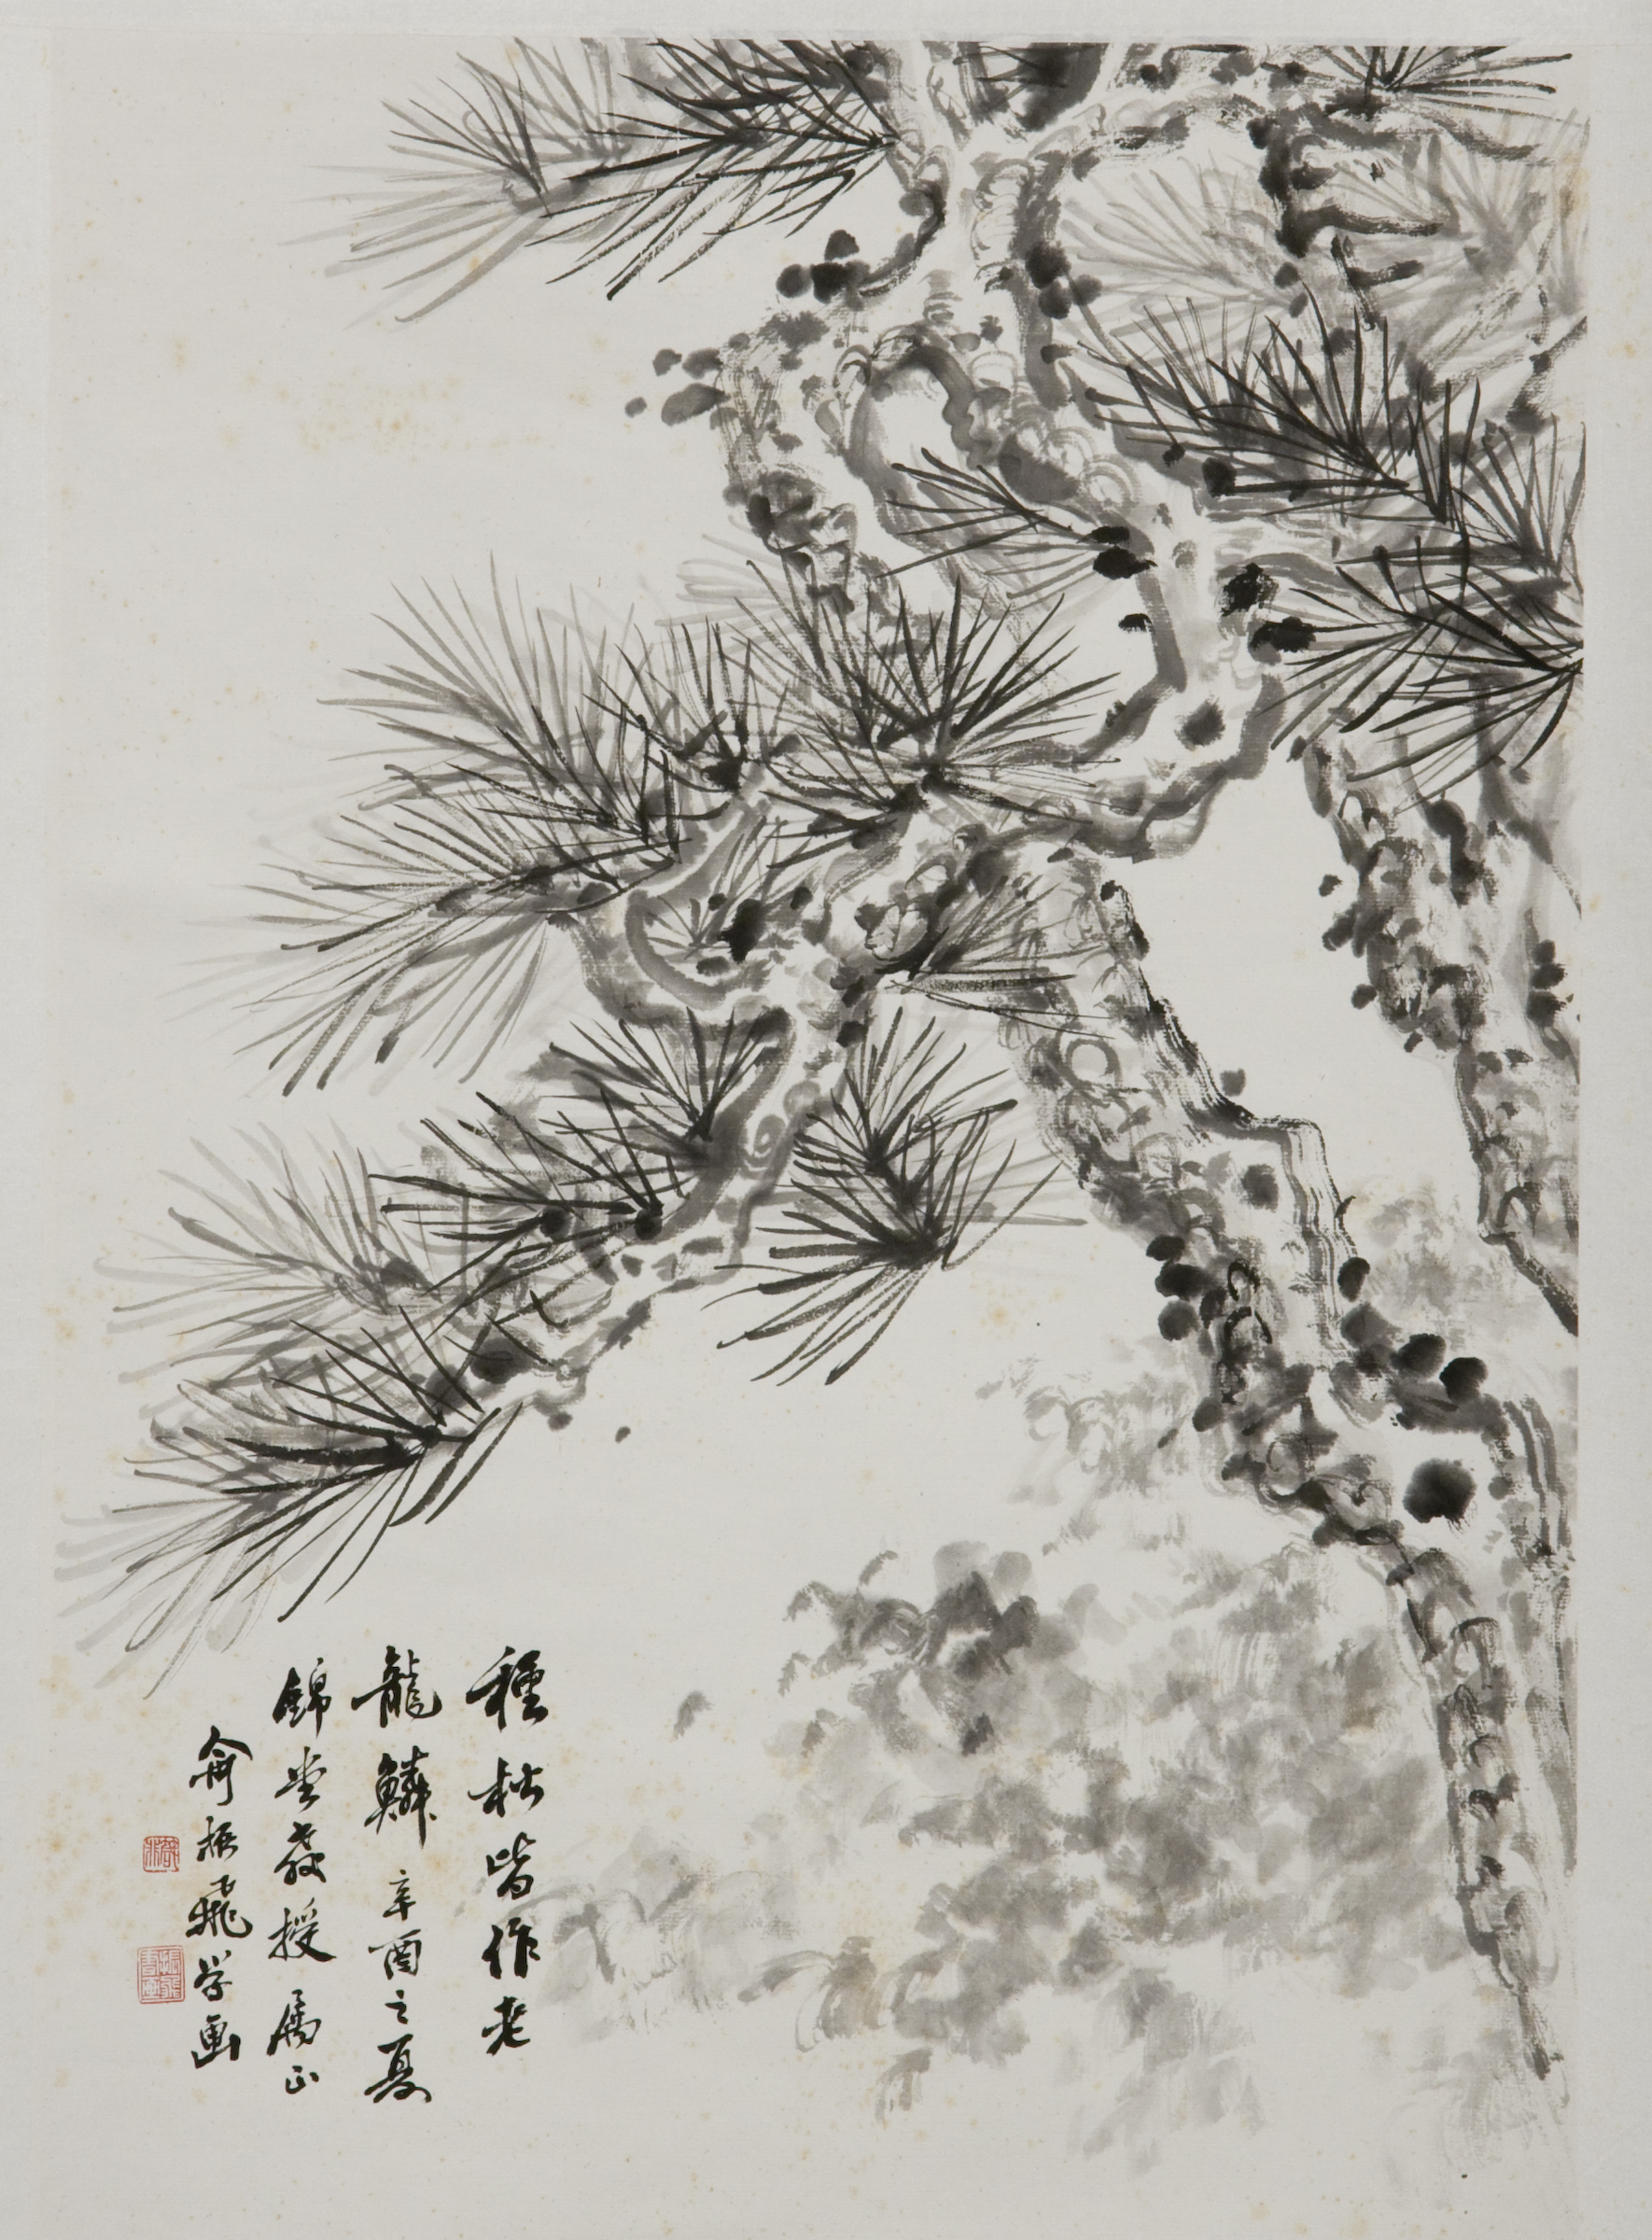 種松皆作老
龍鱗 辛酉之夏
錦堂教授属正
俞振飛学画